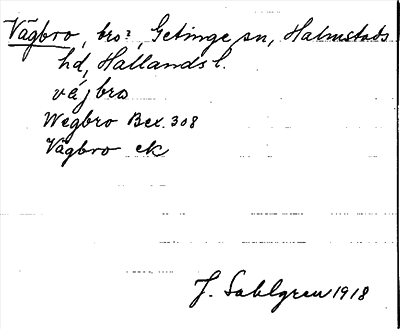 Vägbro, bro?, Getinge sn, Halmstads
hd, Hallands l.
vä́jbro
Wegbro Bex. 308
Vägbro ek
J. Sahlgren 1918